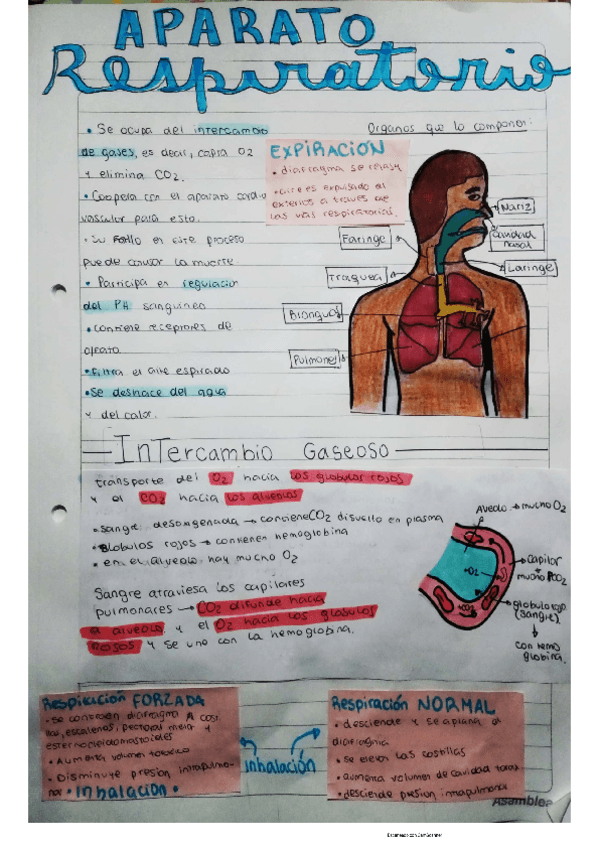 APARATO
Respiratorio
• Se ocupa del intercambio
de gases, es decir, capta O2
y elimina CO2.
• Coopera con el aparato cardio
vascular para esto.
• Su fallo en este proceso
puede causar la muerte.
• Participa en regulacion
del PH sanguineo
• contiene receptores de
olfato
• Filtra el aire espirado
• Se deshace del agua
y del calor.
EXPIRACIÓN
• diafragma se relaja
• aire es expulsado al
exterior a traves de
las vias respiratorias.
Organos que lo componen:
Nariz
Cavidad
nasal
Laringe
Faringe
Traquea
Bronquios
Pulmones
InTercambio Gaseoso
transporte del O2 hacia los globulos rojos
y el CO2 hacia los alveolos
• Sangre desoxigenada → contiene CO2 disuelto en plasma
• Globulos rojos → contienen hemoglobina
• en el alveolo hay mucho O2
Sangre atraviesa los capilares
pulmonares → CO2 difunde hacia
a alveolo y el O2 hacia los globulos
rojos y se une con la hemoglobina.
Alveolo → mucho O2
+O2
→ Capilar
mucho PCO2
→ globulo rojo
(sangre)
con hemo
globina
Respiración FORZADA
• Se contraen diafragma y cost
illas, escalenos, pectoral menor y
esternocleidomastoideos
• Aumenta volumen toracico
• Disminuye presion intrapulmo-
nar • Inhalacion •
inhalación
Respiración NORMAL
• desciende y se aplana el
diafragma
• se elevan las costillas
• aumenta volumen de cavidad torax
• desciende presion intrapulmonar
Asamblea
Escaneado con CamScanner